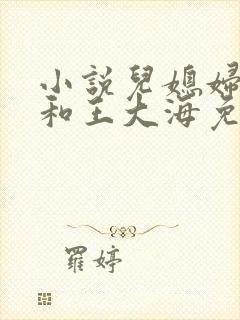 小說兒媳婦
和王大海免
羅婷